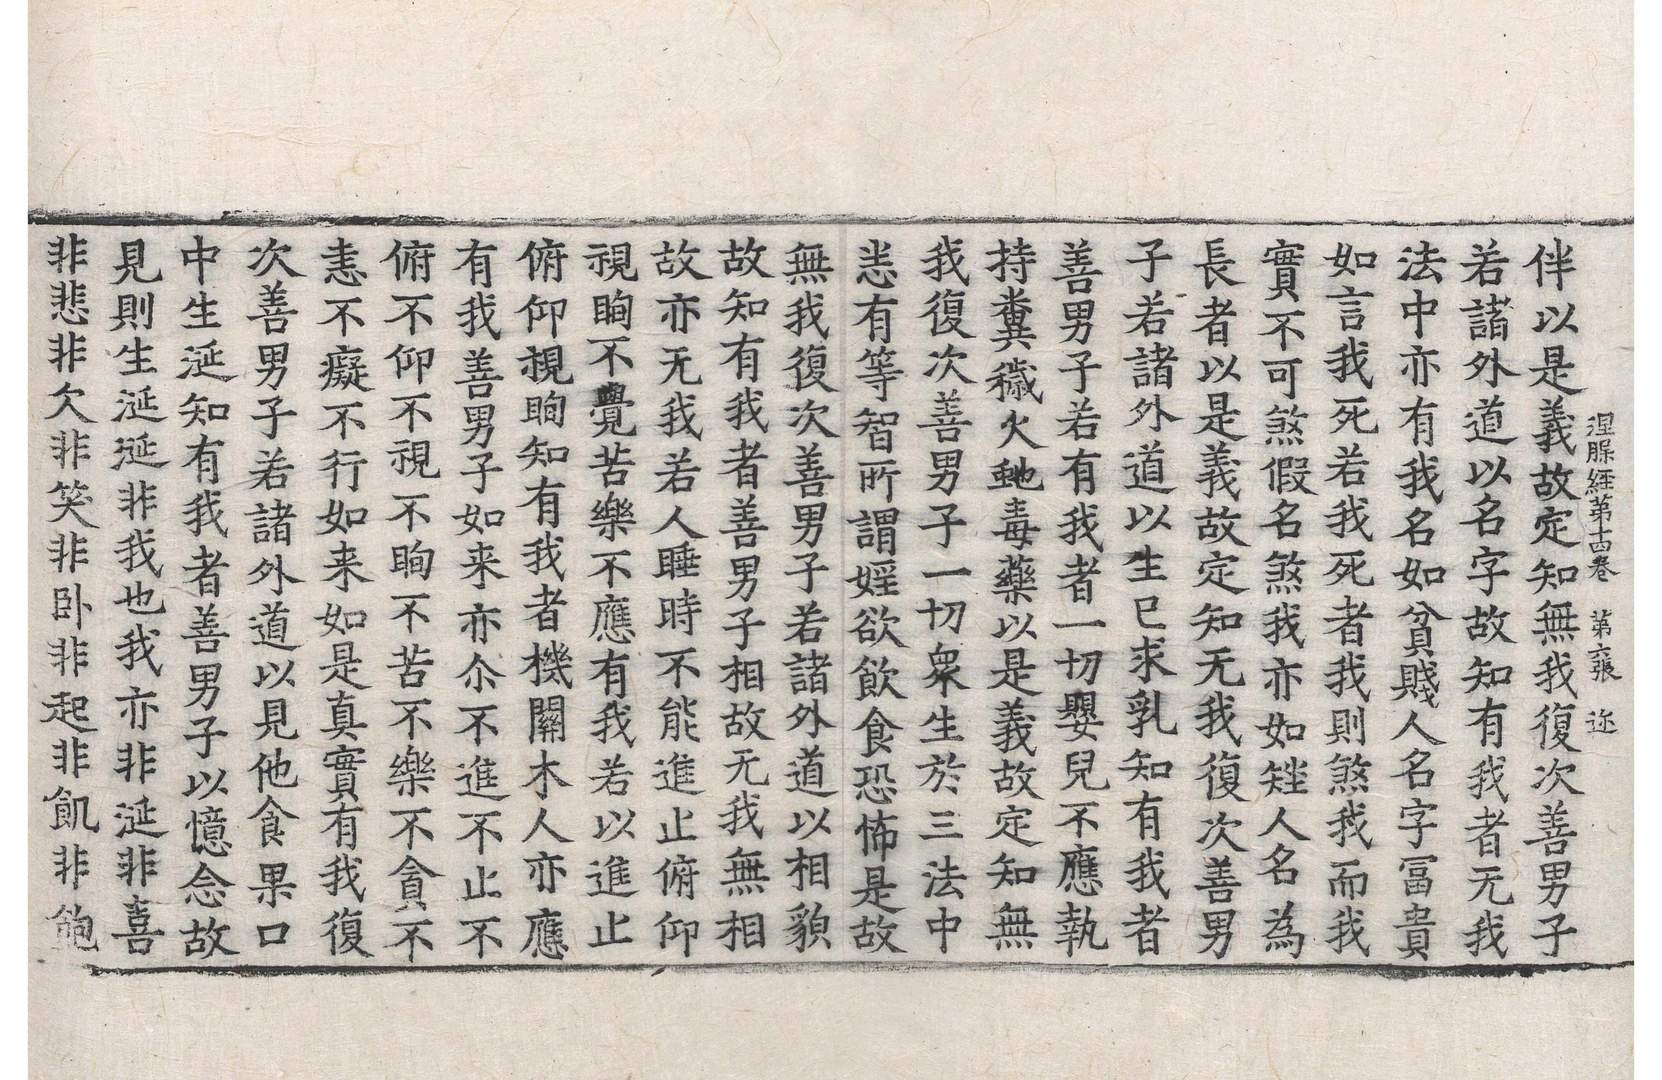 涅槃経第十四卷　第六張　迩
伴以是義故定知無我復次善男子
若諸外道以名字故知有我者无我
法中亦有我名如貧賤人名字冨貴
如言我死若我死者我則煞我而我
實不可煞假名煞我亦如矬人名為
長者以是義故定知无我復次善男
子若諸外道以生已求乳知有我者
善男子若有我者一切嬰兒不應執
持糞穢火虵毒藥以是義故定知無
我復次善男子一切衆生於三法中
悉有等智所謂婬欲飲食恐怖是故
無我復次善男子若諸外道以相貌
故知有我者善男子相故无我無相
故亦无我若人睡時不能進止俯仰
視眴不覺苦樂不應有我若以進止
俯仰視眴知有我者機關木人亦應
有我善男子如来亦尒不進不止不
俯不仰不視不眴不苦不樂不貪不
恚不癡不行如来如是真實有我復
次善男子若諸外道以見他食果口
中生涎知有我者善男子以憶念故
見則生涎涎非我也我亦非涎非喜
非悲非欠非笑非卧非起非飢非飽